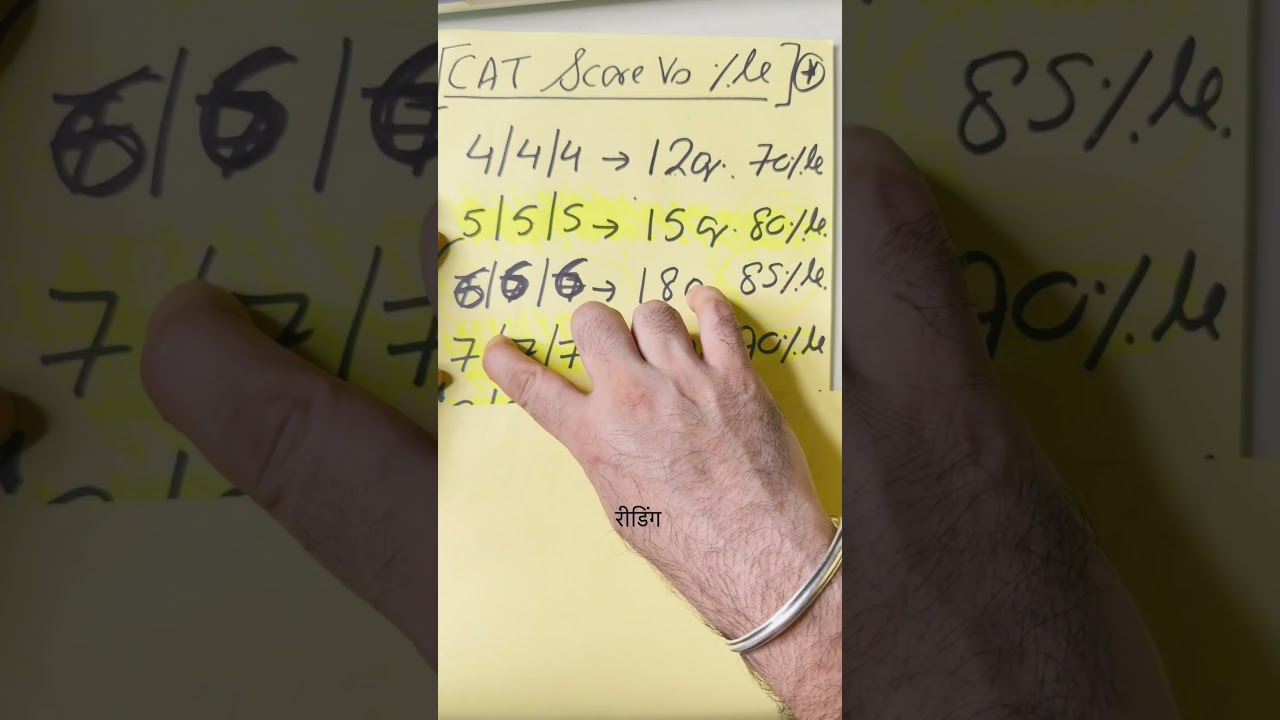 [CAT Score Vs %le]*
4/4/4 → 12q. 70%le
5/5/5 → 15q. 80%le
6/6/6 → 18q 85%le
7/7/7 90%le
रीडिंग